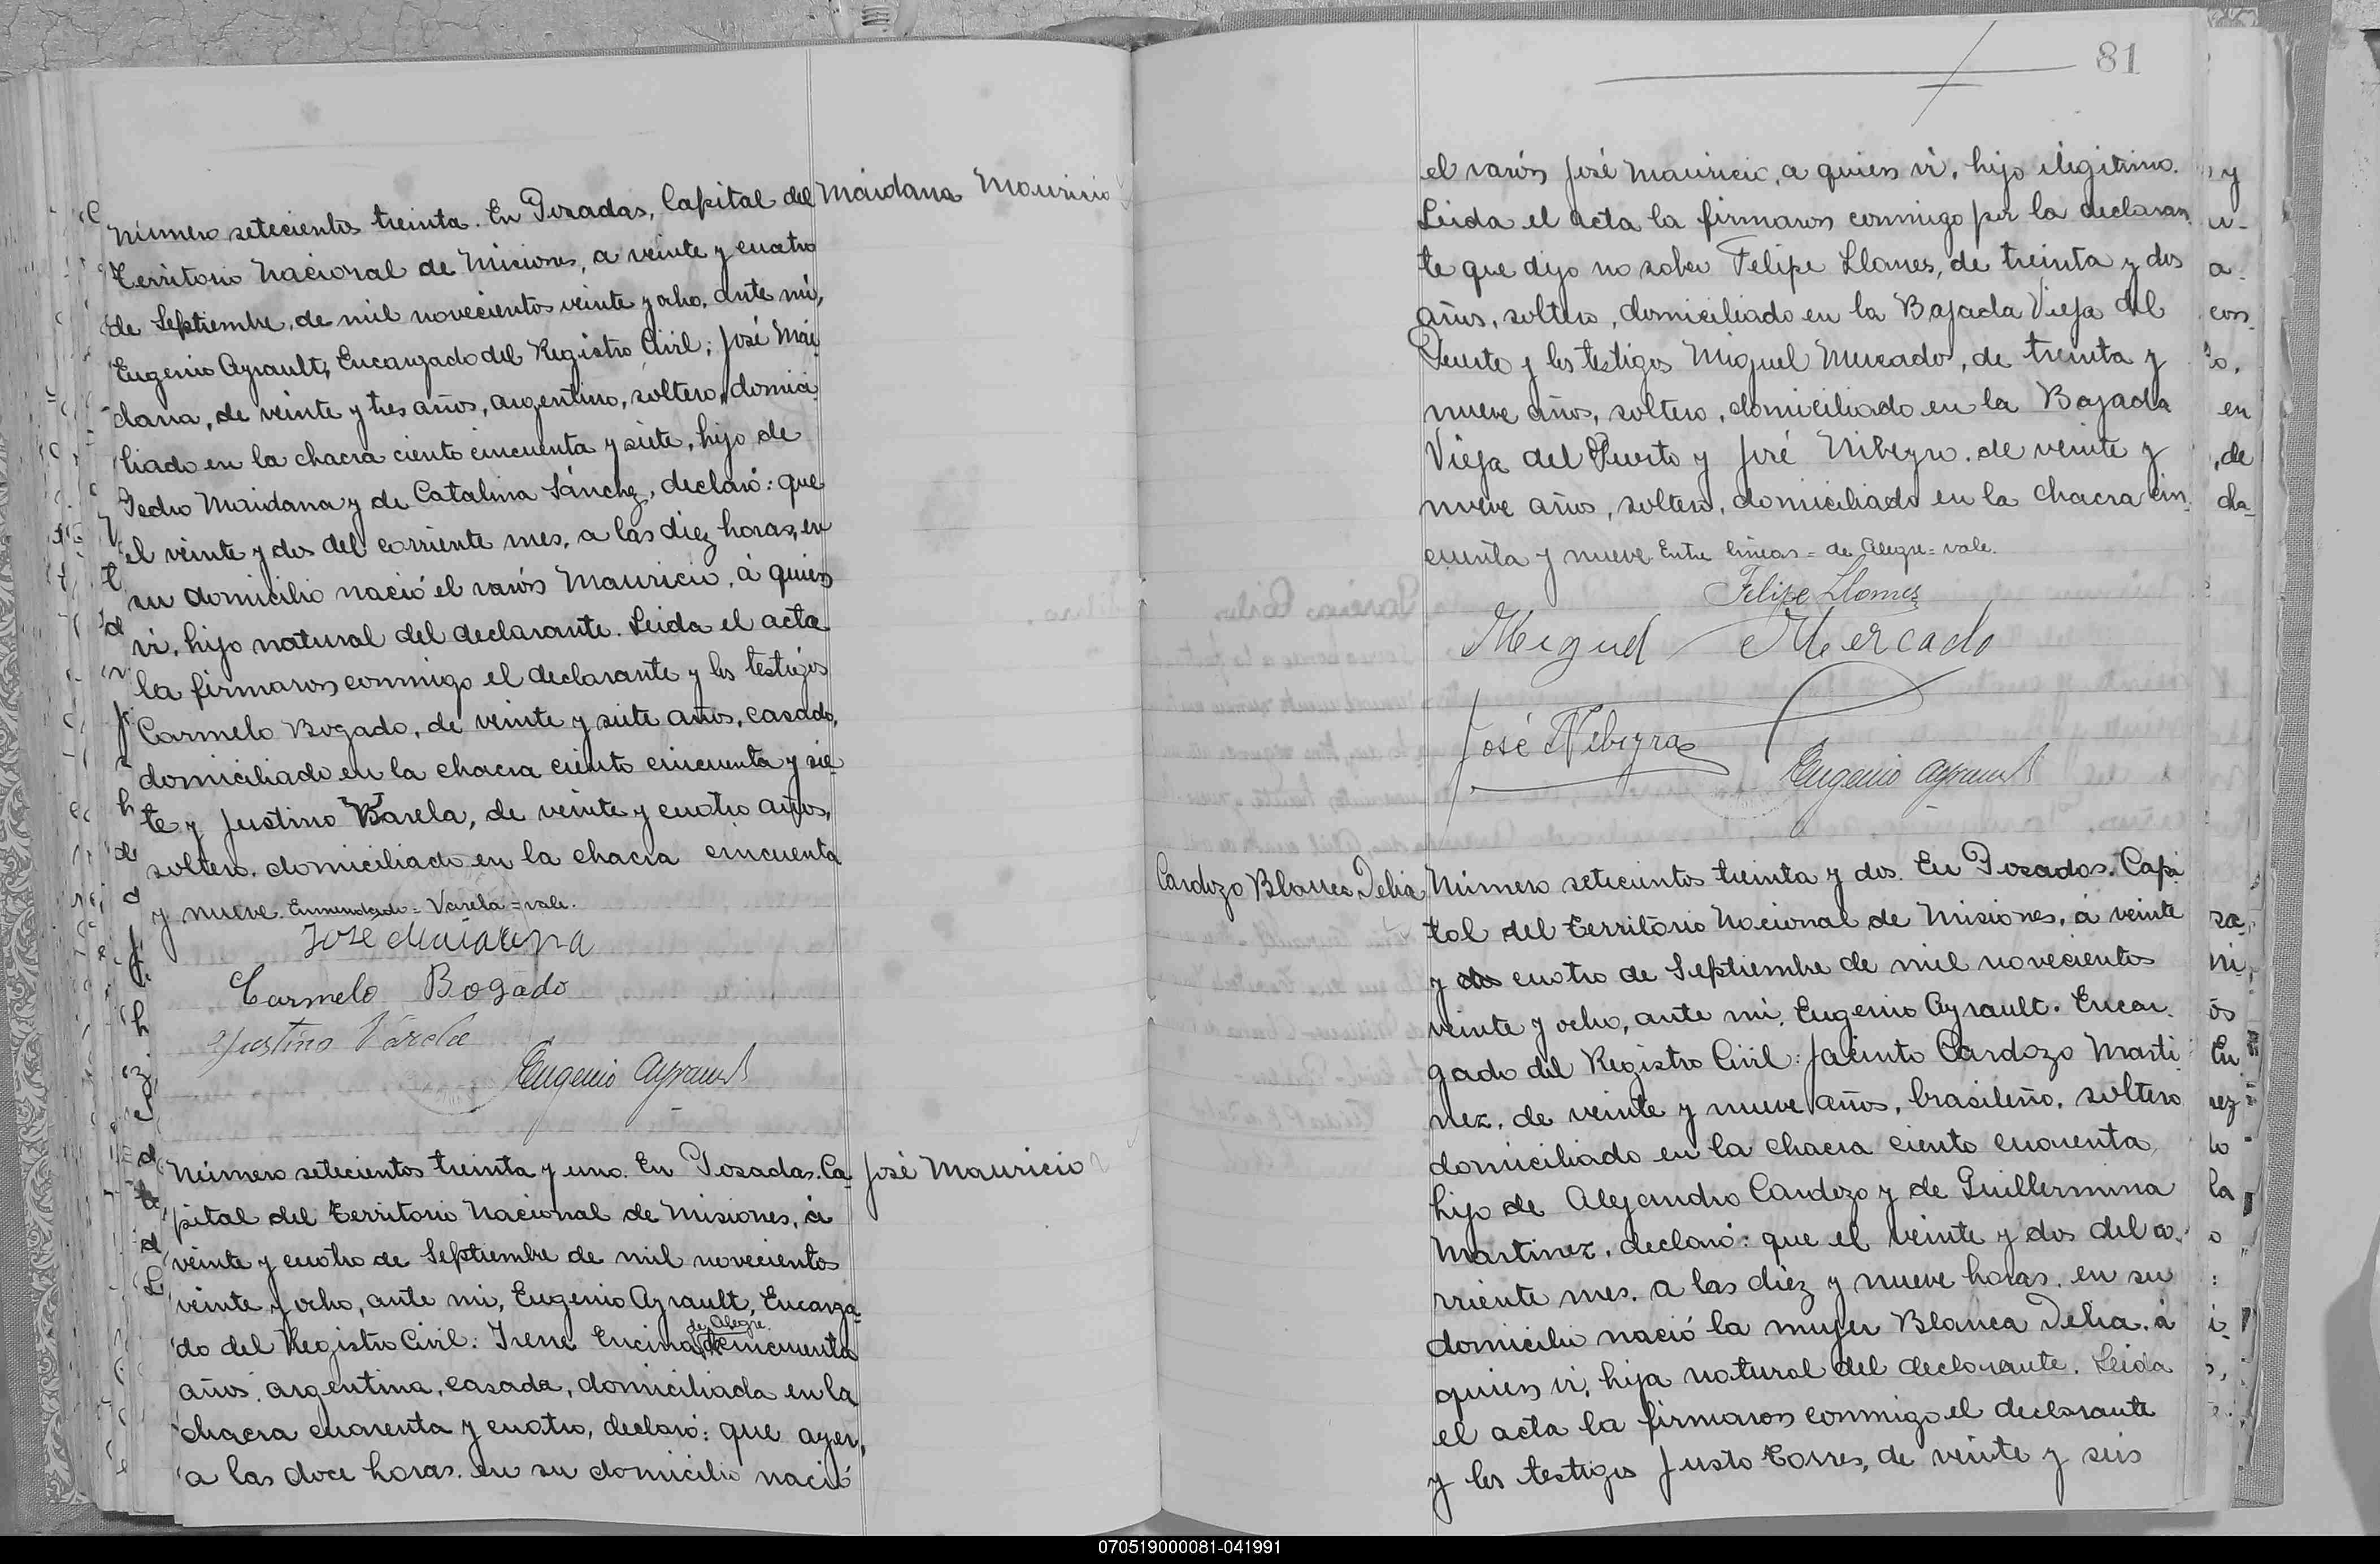 Número setecientos treinta. En Posadas, Capital del
Territorio Nacional de Misiones, a veinte y cuatro
de Septiembre, de mil novecientos veinte y ocho, ante mi,
Eugenio Ayrault, Encargado del Registro Civil; José Mai-
dana, de veinte y tres años, argentino, soltero, domici-
liado en la chacra ciento cincuenta y siete, hijo de
Pedro Maidana y de Catalina Sánchez, declaró: que
el veinte y dos del corriente mes, a las diez horas, en
su domicilio nació el varón Mauricio, á quien
vi, hijo natural del declarante. Leida el acta
la firmaron conmigo el declarante y los testigos
Carmelo Bogado, de veinte y siete años, casado,
domiciliado en la chacra ciento cincuenta y sie-
te y Justino Varela, de veinte y cuatro años,
soltero, domiciliado en la chacra cincuenta
y nueve. Enmendado = Varela = vale.
José Maidana
Carmelo Bogado
Justino Varela
Eugenio Ayrault
Maidana Mauricio
Número setecientos treinta y uno. En Posadas. Ca-
pital del Territorio Nacional de Misiones, á
veinte y cuatro de Septiembre de mil novecientos
veinte y ocho, ante mi, Eugenio Ayrault, Encarga-
do del Registro Civil: Irene Encina de Alegre de cincuenta
años, argentina, casada, domiciliada en la
chacra cuarenta y cuatro, declaró: que ayer,
a las doce horas, en su domicilio nació
José Mauricio
81
el varón José Mauricio, a quien vi, hijo ilegitimo.
Leida el acta la firmaron conmigo por la declaran-
te que dijo no saber Felipe Llanes, de treinta y dos
años, soltero, domiciliado en la Bajada Vieja del
Puerto y los testigos Miguel Mercado, de treinta y
nueve años, soltero, domiciliado en la Bajada
Vieja del Puerto y José Nibeyro, de veinte y
nueve años, soltero, domiciliado en la chacra cin-
cuenta y nueve. Entre lineas = de Alegre = vale.
Felipe Llanes
Miguel Mercado
José Nibeyra
Eugenio Ayrault
Cardozo Blanca Delia
Número setecientos treinta y dos. En Posadas. Capi-
tal del Territorio Nacional de Misiones, á veinte
y dos cuatro de Septiembre de mil novecientos
veinte y ocho, ante mi, Eugenio Ayrault. Encar-
gado del Registro Civil: Jacinto Cardozo Marti-
nez, de veinte y nueve años, brasileño, soltero
domiciliado en la chacra ciento cuarenta,
hijo de Alejandro Cardozo y de Guillermina
Martinez, declaró: que el veinte y dos del co-
rriente mes, a las diez y nueve horas, en su
domicilio nació la mujer Blanca Delia, á
quien vi, hija natural del declarante. Leida
el acta la firmaron conmigo el declarante
y los testigos Justo Torres, de veinte y seis
070519000081-041991